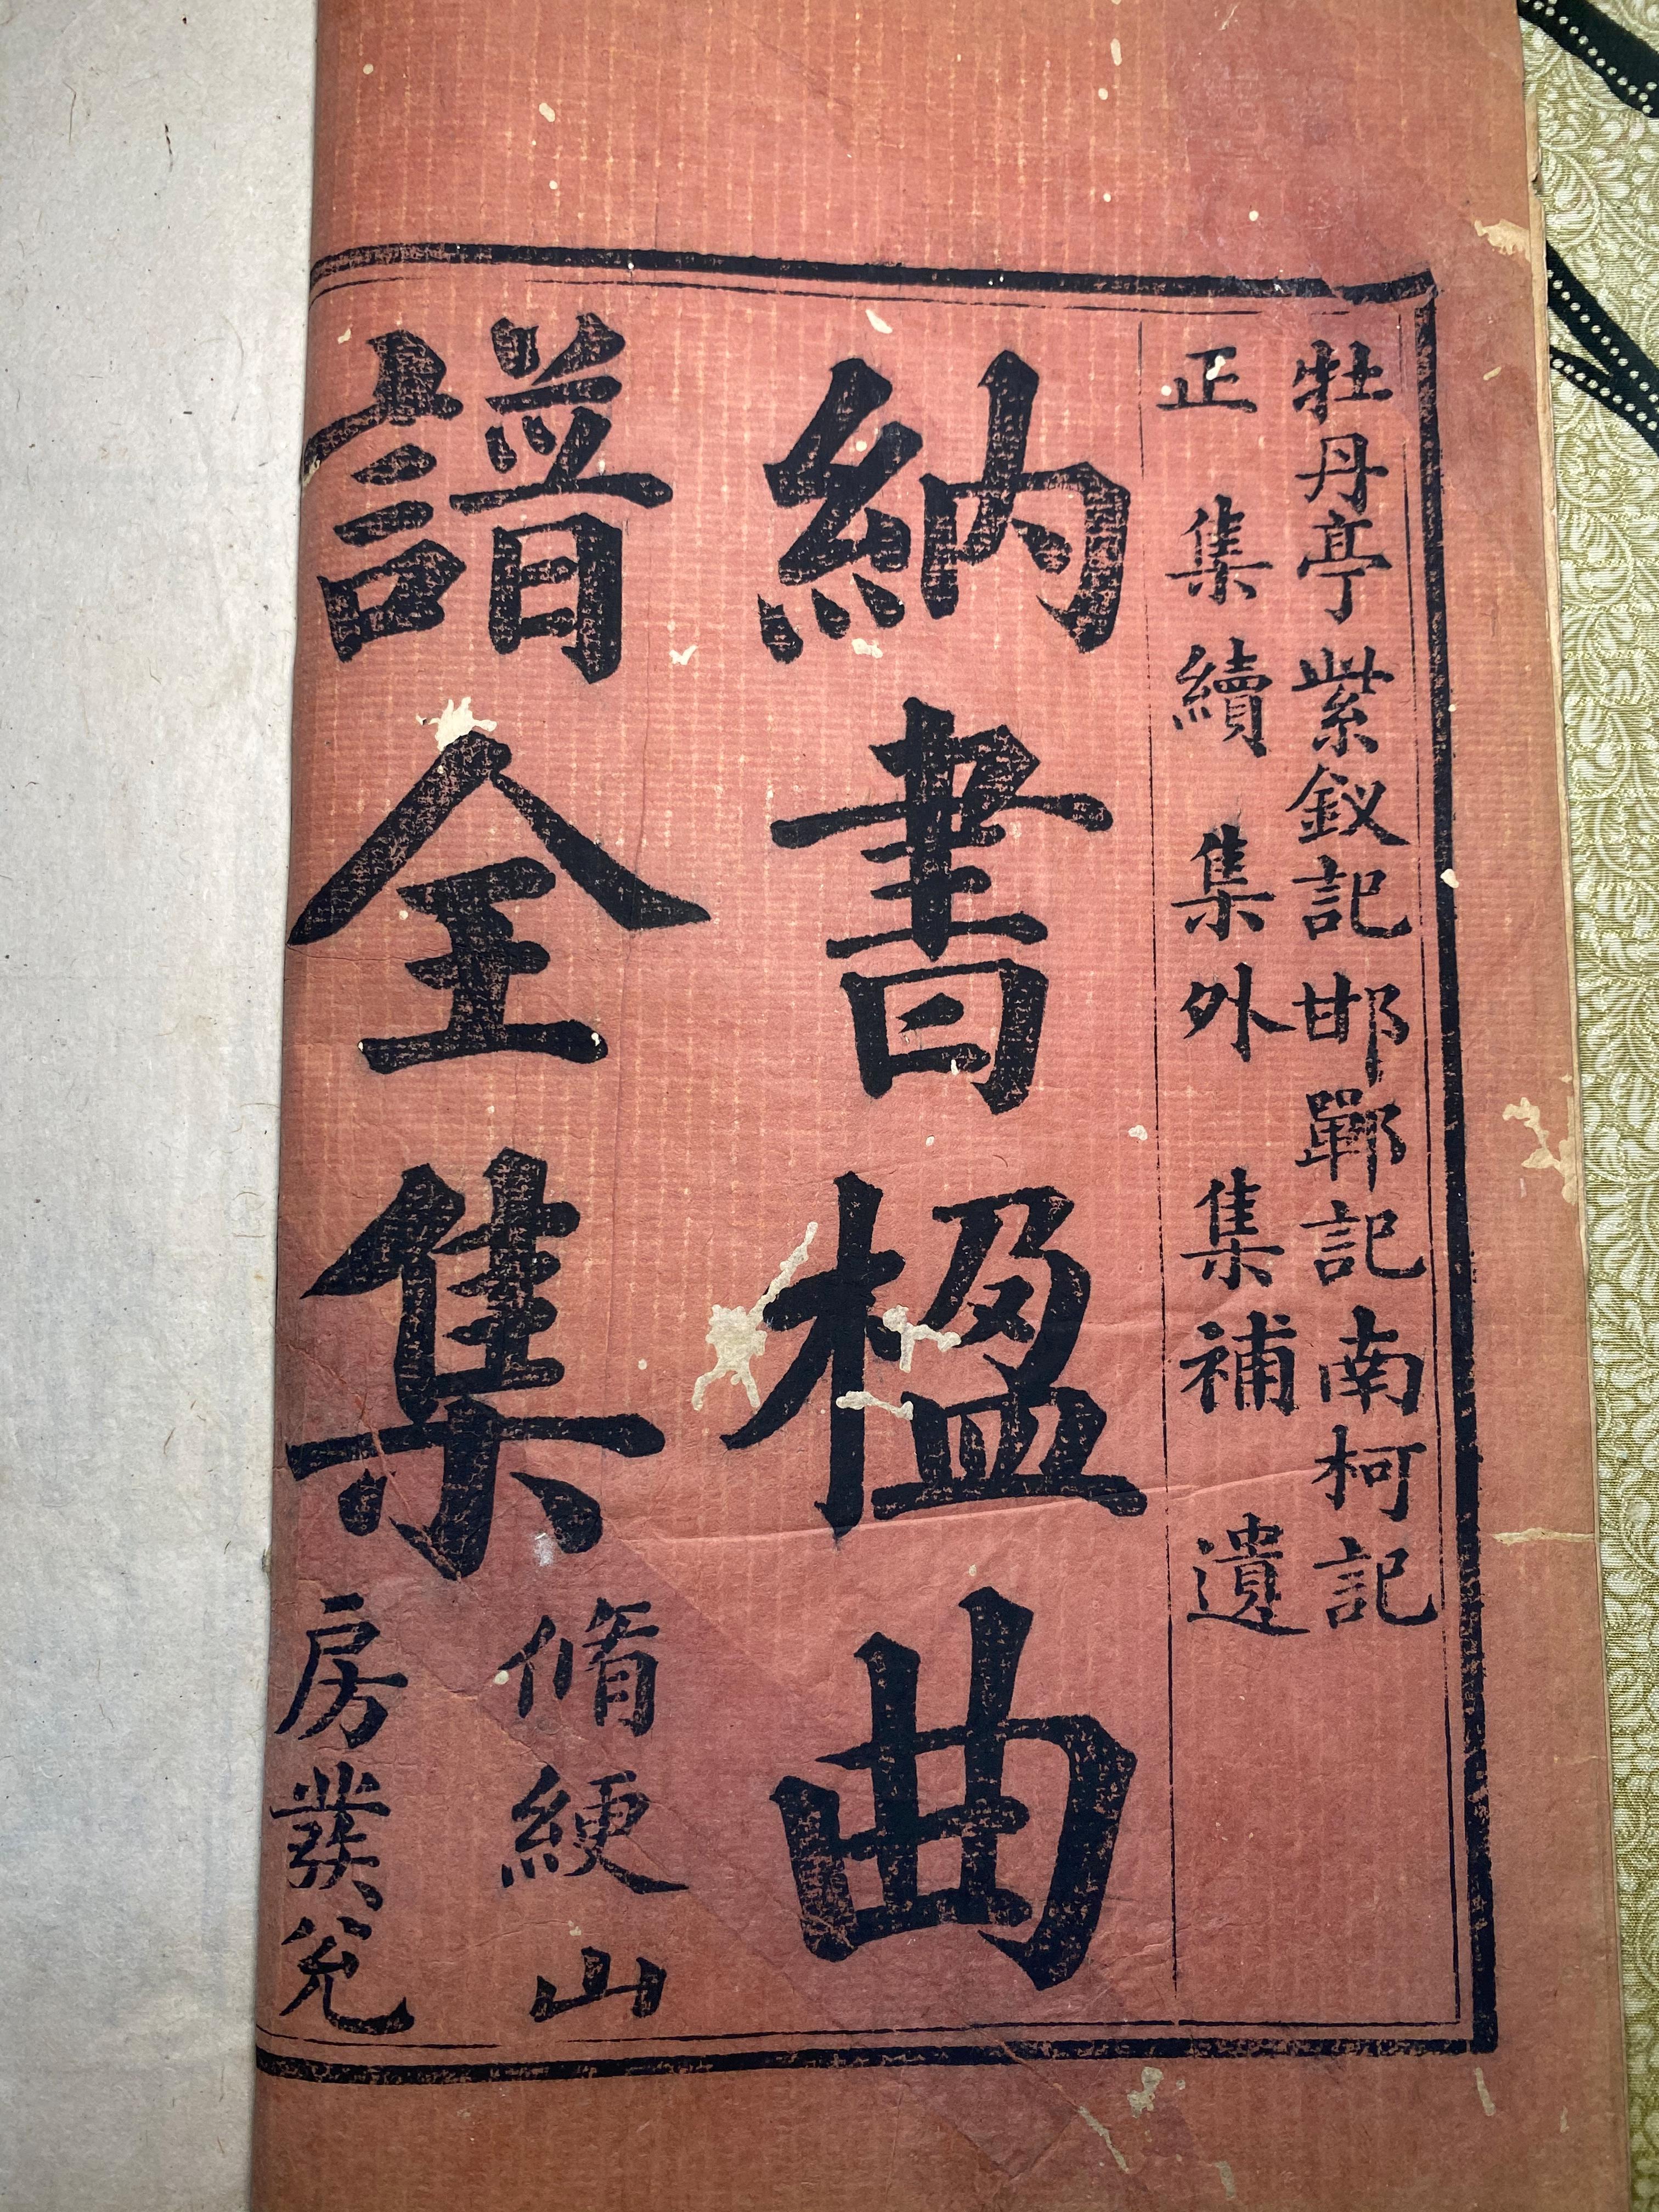 牡丹亭紫釵記邯鄲記南柯記
正集續集外集補遺
納書楹曲
譜全集
脩綆山
房發兌